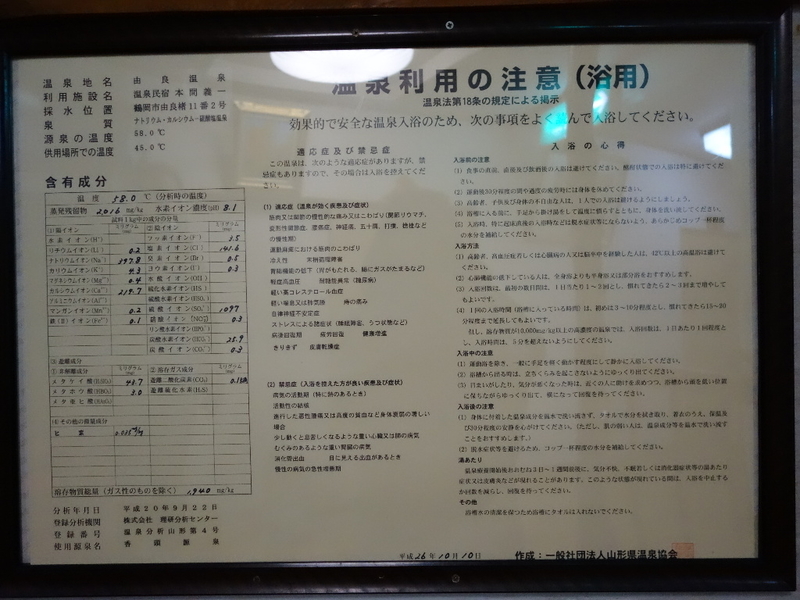 温泉地名 由良温泉
利用施設名 温泉民宿 本間義一
採水位置 鶴岡市由良楮11番2号
泉質 ナトリウム・カルシウム-硫酸塩温泉
源泉の温度 58.0℃
供用場所での温度 45.0℃
含有成分
温度 58.0 ℃ (分析時の温度)
蒸発残留物 2016 mg/kg 水素イオン濃度(pH) 8.1
試料1kg中の成分の分量
(1)陽イオン ミリグラム (2)陰イオン ミリグラム
水素イオン(H⁺) フッ素イオン(F⁻) 3.5
リチウムイオン(Li⁺) 0.2 塩素イオン(Cl⁻) 141.6
ナトリウムイオン(Na⁺) 397.8 臭素イオン(Br⁻) 0.5
カリウムイオン(K⁺) 4.3 ヨウ素イオン(I⁻) 0.3
マグネシウムイオン(Mg²⁺) 0.4 水酸イオン(OH⁻)
カルシウムイオン(Ca²⁺) 219.7 硫化水素イオン(HS⁻)
アルミニウムイオン(Al³⁺) 硫酸水素イオン(HSO₄⁻)
マンガンイオン(Mn²⁺) 0.2 硫酸イオン(SO₄²⁻) 1097
鉄(Ⅱ)イオン(Fe²⁺) 0.1 硝酸イオン(NO₃⁻) 0.3
炭酸水素イオン(HCO₃⁻) 25.9
炭酸イオン(CO₃²⁻) 0.3
(3)遊離成分
①非解離成分 ミリグラム ②溶存ガス成分 ミリグラム
メタケイ酸(H₂SiO₃) 45.7 遊離二酸化炭素(CO₂)
メタホウ酸(HBO₂) 3.0 遊離硫化水素(H₂S)
(4)その他の微量成分
ヒ素
溶存物質総量(ガス性のものを除く) 1,940 mg/kg
分析年月日 平成20年9月22日
登録分析機関 株式会社 理研分析センター
登録番号 温泉分析山形第4号
使用源泉名
温泉利用の注意(浴用)
温泉法第18条の規定による掲示
効果的で安全な温泉入浴のため、次の事項をよく読んで入浴してください。
適応症及び禁忌症
この温泉は、次のような適応症がありますが、禁
忌症もありますので、その場合は入浴を控えてくだ
さい。
(1) 適応症(温泉が効く疾患及び症状)
筋肉又は関節の慢性的な痛み又はこわばり(関節リウマチ、
変形性関節症、腰痛症、神経痛、五十肩、打撲、捻挫など
の慢性期)
運動麻痺における筋肉のこわばり
冷え性 末梢循環障害
胃腸機能の低下(胃がもたれる、腸にガスがたまるなど)
軽症高血圧 耐糖能異常(糖尿病)
軽い高コレステロール血症
軽い喘息又は肺気腫 痔の痛み
自律神経不安定症
ストレスによる諸症状(睡眠障害、うつ状態など)
病後回復期 疲労回復 健康増進
きりきず 皮膚乾燥症
(2) 禁忌症(入浴を控えた方が良い疾患及び症状)
病気の活動期(特に熱のあるとき)
活動性の結核
進行した悪性腫瘍又は高度の貧血など身体衰弱の著しい
場合
少し動くと息苦しくなるような重い心臓又は肺の病気
むくみのあるような重い腎臓の病気
消化管出血 目に見える出血があるとき
慢性の病気の急性増悪期
入浴の心得
入浴前の注意
(1) 食事の直前、直後及び飲酒後の入浴は避けてください。酩酊状態での入浴は特に避けてく
ださい。
(2) 運動後30分程度の間や過度の疲労時には身体を休めてください。
(3) 高齢者、子供及び身体の不自由な人は、1人での入浴は避けるようにしましょう。
(4) 浴槽に入る前に、手足から掛け湯をして温度に慣らすとともに、身体を洗い流してください。
(5) 入浴時、特に起床直後の入浴時などは脱水状態等にならないよう、あらかじめコップ一杯程度
の水分を補給してください。
入浴方法
(1) 高齢者、高血圧症若しくは心臓病の人又は脳卒中を経験した人は、42℃以上の高温浴は避けて
ください。
(2) 心肺機能の低下している人は、全身浴よりも半身浴又は部分浴をおすすめします。
(3) 入浴回数は、最初の数日間は、1日当たり1〜2回とし、慣れてきたら2〜3回まで増やして
もよいです。
(4) 1回の入浴時間(浴槽に入っている時間)は、初めは3〜10分程度とし、慣れてきたら15〜20
分程度まで延長してもよいです。
但し、溶存物質が10,000mg/kg以上の高濃度の温泉では、入浴回数は、1日あたり1回程度と
し、入浴時間は、5分を超えないようにしてください。
入浴中の注意
(1) 運動浴を除き、一般に手足を軽く動かす程度にして静かに入浴してください。
(2) 浴槽から出る時は、立ちくらみを起こさないようにゆっくり出てください。
(3) 目まいがしたり、気分が悪くなった時は、近くの人に助けを求めつつ、浴槽から頭を低い位置
に保ちながらゆっくり出て、横になって回復を待ってください。
入浴後の注意
(1) 身体に付着した温泉成分を温水で洗い流さず、タオルで水分を拭き取り、着衣のうえ、保温及
び30分程度の安静を心がけてください。(ただし、肌の弱い人は、温泉成分等を温水で洗い流す
ことをおすすめします。)
(2) 脱水症状等を避けるため、コップ一杯程度の水分を補給してください。
湯あたり
温泉療養開始後おおむね3日〜1週間前後に、気分不快、不眠若しくは消化器症状等の湯あたり
症状又は皮膚炎などが現れることがあります。このような状態が現れている間は、入浴を中止する
か回数を減らし、回復を待ってください。
その他
浴槽水の清潔を保つため浴槽にタオルは入れないでください。
平成26年10月10日 作成:一般社団法人山形県温泉協会